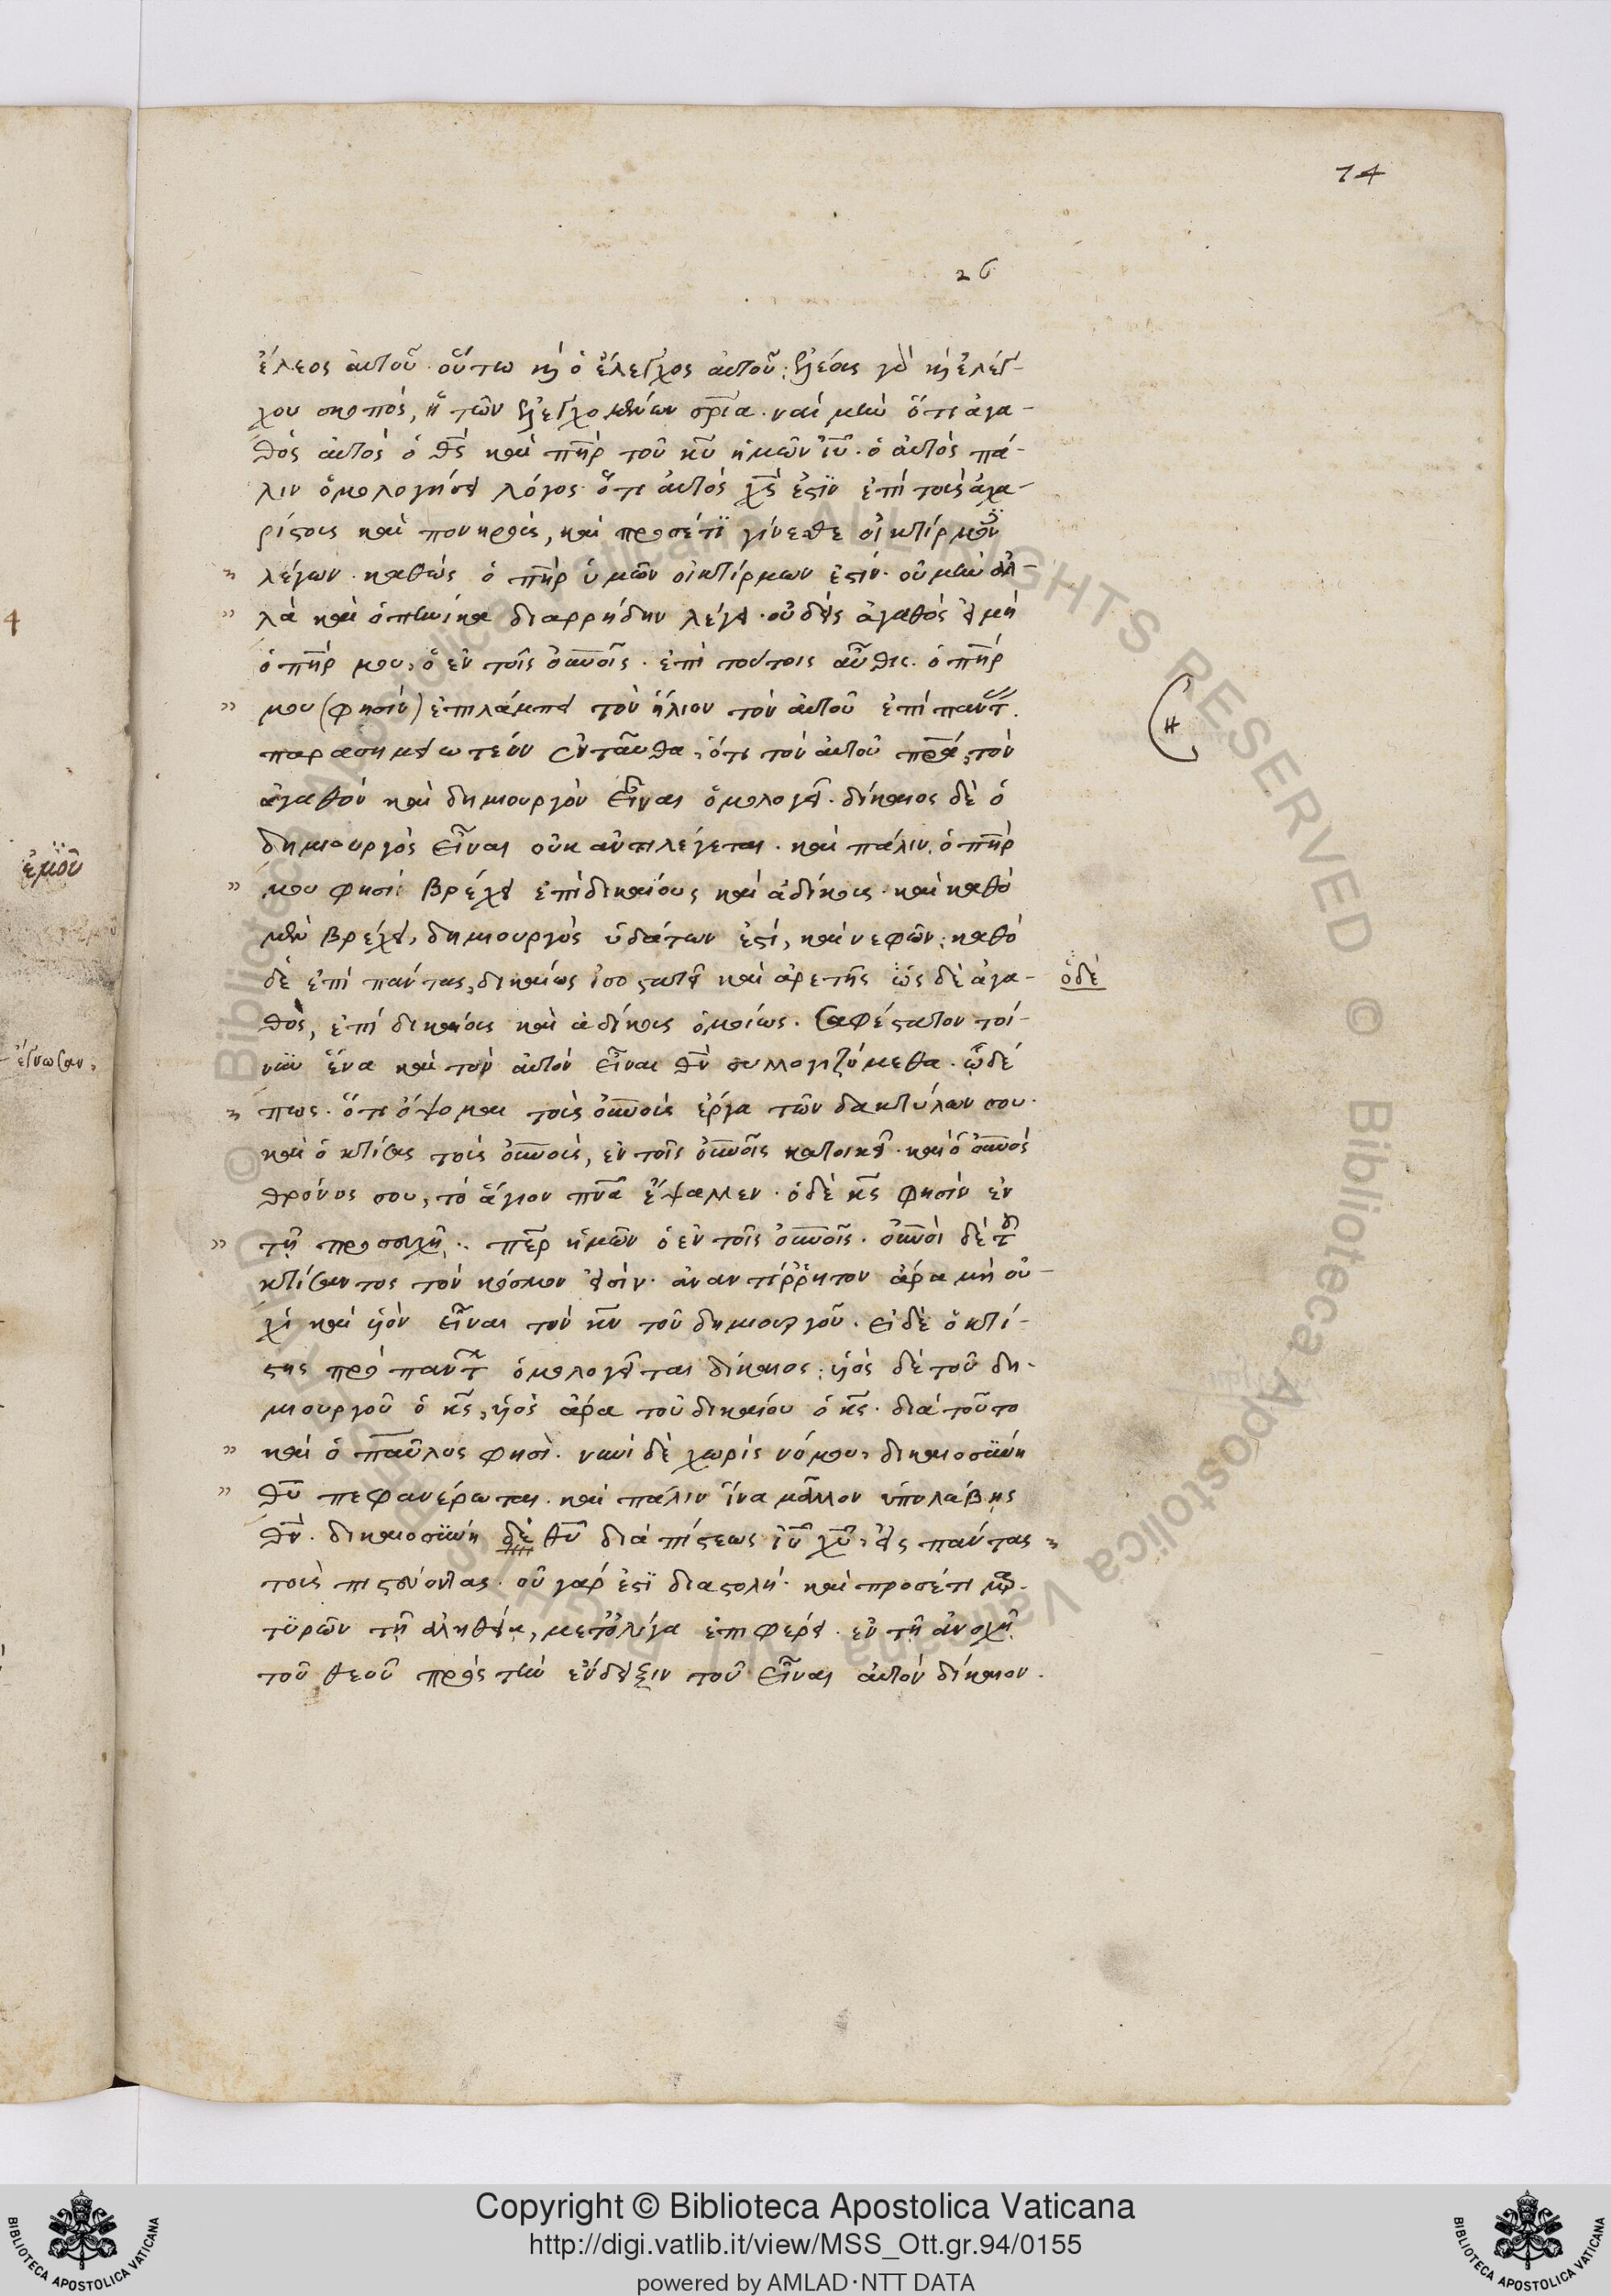 74
26
ἔλεος αὐτοῦ· οὕτω κὴ ὁ ἔλεγχος αὐτοῦ; ἐλέους γὰρ κὴ ἐλέγ-
χου σκοπός, ἡ τῶν ἐλεγχομένων σρ̅ία· ναὶ μὴν ὅτι ἀγα-
θὸς αὐτὸς ὁ θς̅ καὶ πη̅ρ τοῦ κυ̅ ἡμῶν ἰυ̅. ὁ αὐτὸς πά-
λιν ὁμολογήσει λόγος· ὅτι αὐτὸς χς̅ ἐστϊν ἐπὶ τοὺς ἀχα-
ρίστους καὶ πονηροὺς, καὶ προσέτϊ γίνεσθε οἰκτίρμον
λέγων· καθὼς ὁ πη̅ρ ὑμῶν οἰκτίρμων ἐστίν· οὐ μὴν ἀλ-
λὰ καὶ ὁπηνίκα διαρρήδην λέγει· οὐδεὶς ἀγαθὸς εἰ μὴ
ὁ πη̅ρ μου, ὁ ἐν τοῖς οὐ̅νοῖς· ἐπὶ τούτοις αὖθις· ὁ πη̅ρ
μου (φησὶν) ἐπιλάμπει τὸν ἥλιον τὸν αὐτοῦ ἐπὶ παντ.
παρασημειωτέον ἐνταῦθα, ὅτι τὸν αὐτοῦ πρ̅α, τὸν
ἀγαθὸν καὶ δημιουργὸν εἶναι ὁμολογεῖ· δίκαιος δὲ ὁ
δημιουργὸς εἶναι οὐκ ἀντιλέγεται· καὶ πάλιν· ὁ πη̅ρ
μου φησὶ βρέχει ἐπὶ δικαίους καὶ ἀδίκους· καὶ καθὸ
μὲν βρέχει, δημιουργὸς ὑδάτων ἐστί, καὶ νεφῶν; καθὸ
δὲ ἐπὶ πάντας, δικαίως ἰσοστατεῖ καὶ ἀρετῆς ὡς δὲ ἀγα-
ὁ δὲ
θὸς, ἐπὶ δικαίους καὶ ἀδίκους ὁμοίως. σαφέστατον τοί-
νυν ἕνα καὶ τὸν αὐτὸν εἶναι θν̅ συλλογιζόμεθα· ὧδέ
πως· ὅτι ὄψομαι τοὺς οὐ̅νοὺς ἔργα τῶν δακτύλων σου·
καὶ ὁ κτίσας τοὺς οὐ̅νοὺς, ἐν τοῖς οὐ̅νοῖς κατοικεῖ· καὶ ὁ οὐ̅νός
θρόνος σου, τὸ ἅγιον πν̅α ἔψαλλεν· ὁ δὲ κς̅ φησὶν ἐν
τῇ προσευχῇ· πε̅ρ ἡμῶν ὁ ἐν τοῖς οὐ̅νοῖς· οὐ̅νοὶ δὲ τοῦ
κτίσαντος τὸν κόσμον εἰσὶν· ἀναντίρρητον ἄρα μὴ οὐ-
χὶ καὶ υἱὸν εἶναι τὸν κν̅ τοῦ δημιουργοῦ· εἰ δὲ ὁ κτί-
στης πρὸ παντ ὁμολογεῖται δίκαιος; υἱὸς δὲ τοῦ δη-
μιουργοῦ ὁ κς̅, υἱὸς ἄρα τοῦ δικαίου ὁ κς̅· διὰ τοῦτο
καὶ ὁ παῦλος φησὶ· νυνὶ δὲ χωρὶς νόμου, δικαιοσύνη
θυ̅ πεφανέρωται· καὶ πάλιν ἵνα μᾶλλον ὑπολάβῃς
θν̅· δικαιοσύνη δὲ θυ̅ διὰ πίστεως ἰυ̅ χυ̅, εἰς πάντας
τοὺς πιστεύοντας· οὐ γάρ ἐστϊ διαστολή· καὶ προσέτι μαρ-
τϋρῶν τῇ ἀληθείᾳ, μετ᾽ ὀλίγα ἐπιφέρει· ἐν τῇ ἀνοχῇ
τοῦ θεοῦ πρὸς τὴν ἔνδειξιν τοῦ εἶναι αὐτὸν δίκαιον.
ἔγνωσαν,
Copyright © Biblioteca Apostolica Vaticana
http://digi.vatlib.it/view/MSS_Ott.gr.94/0155
powered by AMLAD·NTT DATA
BIBLIOTECA APOSTOLICA VATICANA
BIBLIOTECA APOSTOLICA VATICANA